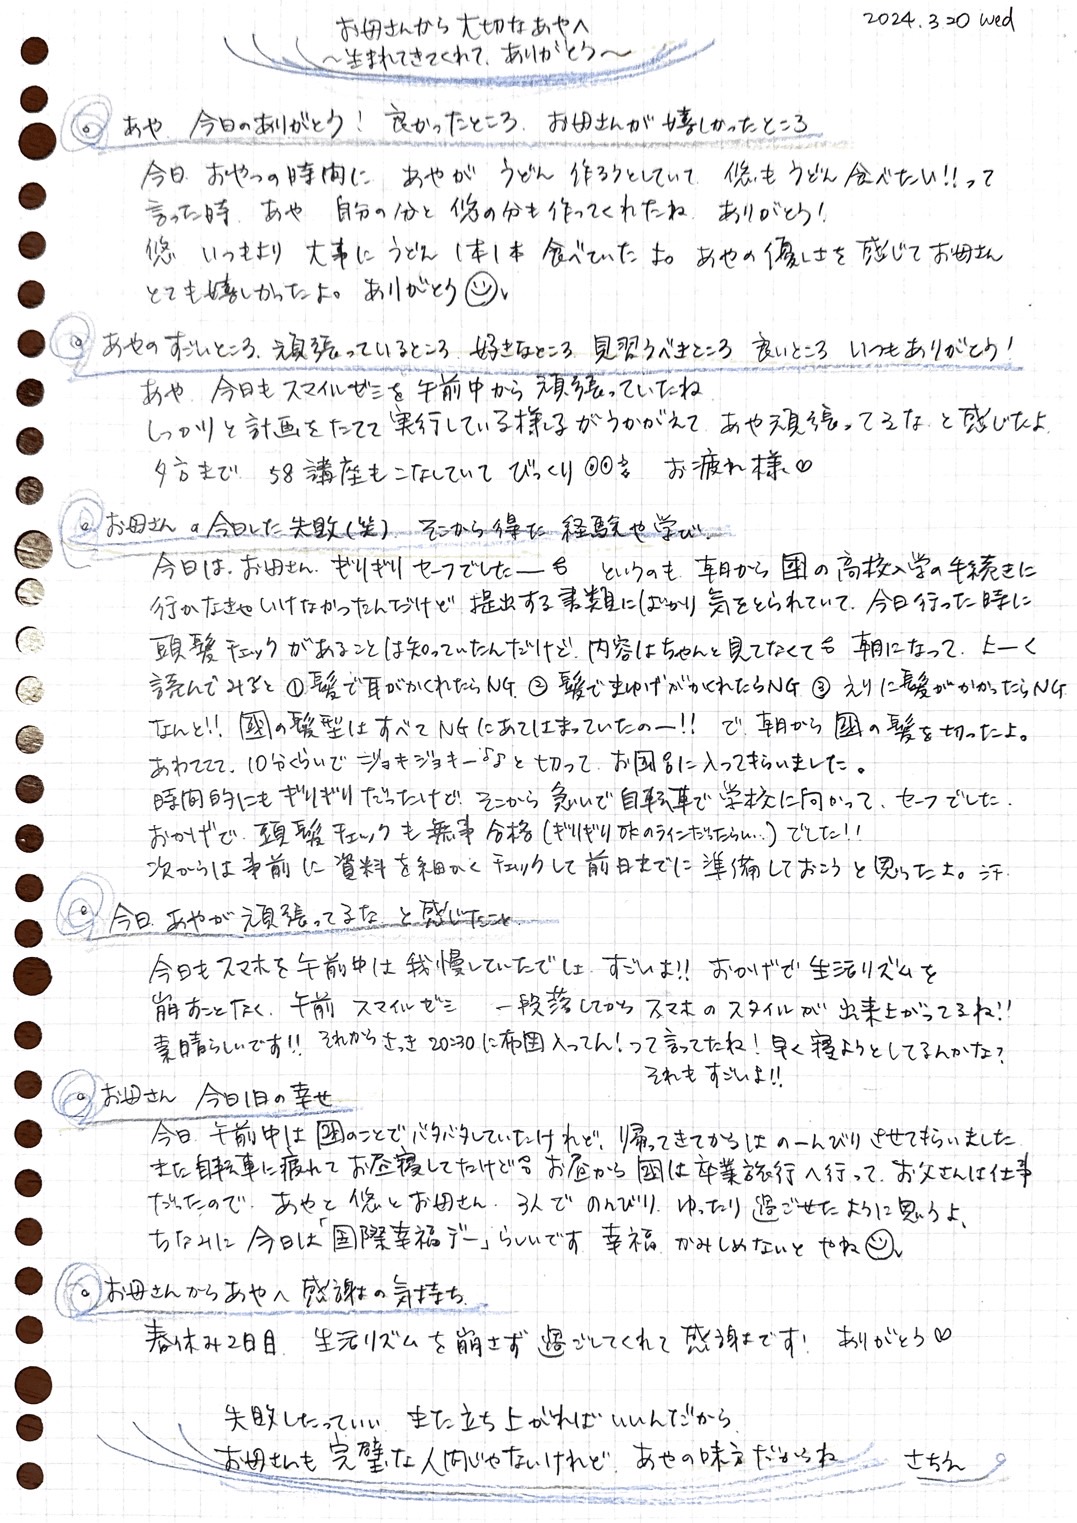 2024.3.20 wed
お母さんから 大切なあやへ
〜生まれてきてくれて、ありがとう〜
あや 今日のありがとう！ 良かったところ、お母さんが嬉しかったところ
今日 おやつの時間に あやが うどん 作ろうとしていて 悠もうどん食べたい!!って
言った時、あや 自分の分と悠の分も作ってくれたね ありがとう！
悠 いつもより 大事に うどん 1本1本 食べていたよ。あやの優しさを感じてお母さん
とても嬉しかったよ。ありがとう
あやのすごいところ、頑張っているところ 好きなところ 見習うべきところ 良いところ いつもありがとう！
あや 今日もスマイルゼミを午前中から頑張っていたね
しっかりと計画をたてて実行している様子がうかがえて あや頑張ってるな と感じたよ
夕方まで 58講座もこなしていて びっくり お疲れ様♡
お母さんの今日した失敗(笑) そこから得た 経験や学び
今日は、お母さん、ぎりぎりセーフでしたー というのも 朝から 圀の高校入学の手続きに
行かなきゃいけなかったんだけど 提出する書類にばかり 気をとられていて、今日行った時に
頭髪チェックがあることは知っていたんだけど、内容はちゃんと見てなくて 朝になって、よーく
読んでみると ①髪で耳がかくれたらNG ②髪でまゆげがかくれたらNG ③えりに髪がかかったらNG
なんと!! 圀の髪型はすべてNGにあてはまっていたのー!! で 朝から 圀の髪を切ったよ。
あわててて、10分くらいで ジョキジョキー♪♪と切って、お風呂に入ってもらいました。
時間的にもぎりぎりだったけど、そこから急いで自転車で学校に向かって、セーフでした、
おかげで、頭髪チェックも無事合格(ぎりぎりOKのラインだったらい…)でした!!
次からは事前に資料を細かくチェックして前日までに準備しておこうと思ったよ。汗
今日 あやが 頑張ってるな と感じたこと
今日もスマホを午前中は我慢していたでしょ、すごいよ!! おかげで生活リズムを
崩すことなく、午前 スマイルゼミ 一段落してから スマホのスタイルが出来上がってるね!!
素晴らしいです!! それからさっき20:30に布団入ってん！って言ってたね！早く寝ようとしてるんかな？
それもすごいよ!!
お母さん 今日1日の幸せ
今日 午前中は 圀のことでバタバタしていたけれど、帰ってきてからはのーんびりさせてもらいました
また自転車に疲れてお昼寝してたけど お昼から圀は卒業旅行へ行って、お父さんは仕事
だったので、あやと悠とお母さん、3人でのんびり、ゆったり過ごせたように思うよ、
ちなみに 今日は「国際幸福デー」らしいです 幸福 かみしめないと やね
お母さんからあやへ 感謝の気持ち
春休み2日目 生活リズムを崩さず過ごしてくれて感謝です！ ありがとう♡
失敗したっていい また立ち上がればいいんだから
お母さんも 完璧な人間じゃないけれど あやの味方だからね さちえ